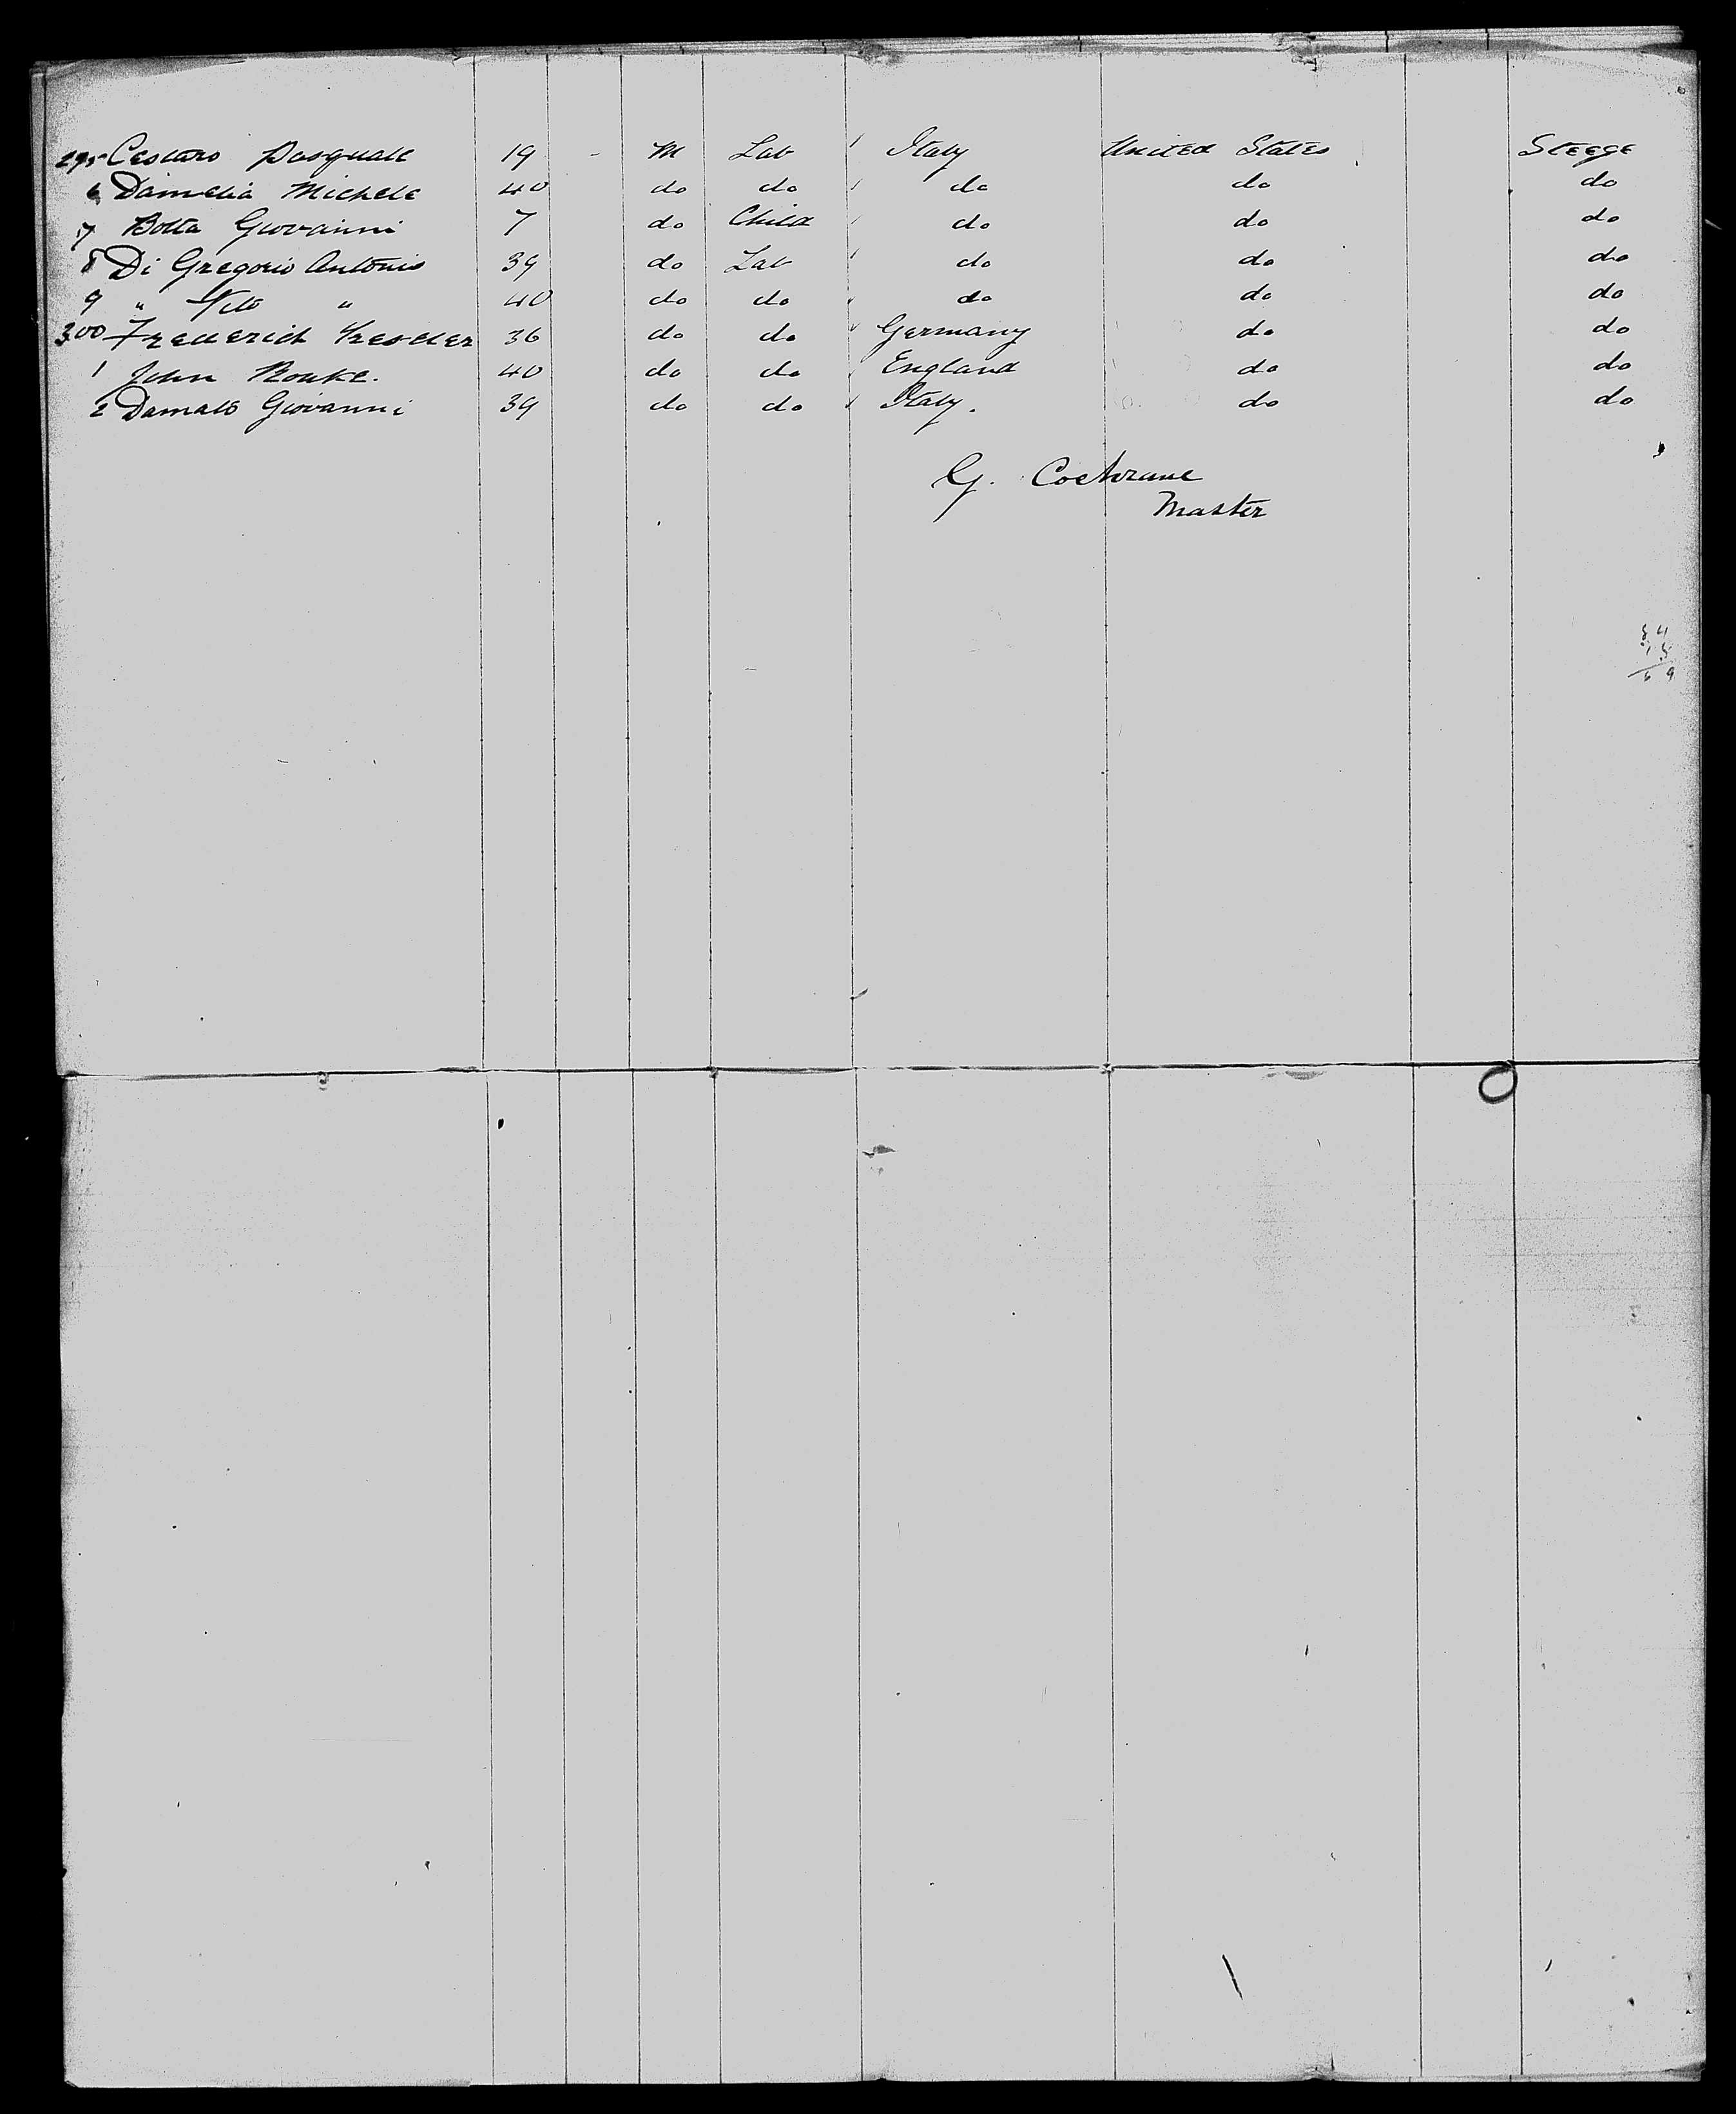 295 Cestaro Pasquale 19 - M Lab Italy United States Steege
6 Damelia Michele 40 do do do do do
7 Botta Giovanni 7 do Child do do do
8 Di Gregorio Antonio 39 do Lab do do do
9 " Vito " 40 do do do do do
300 Frederich 36 do do Germany do do
1 John Rouke. 40 do do England do do
2 Damato Giovanni 39 do do Italy. do do
G. Cochrane
Master
54
15
69